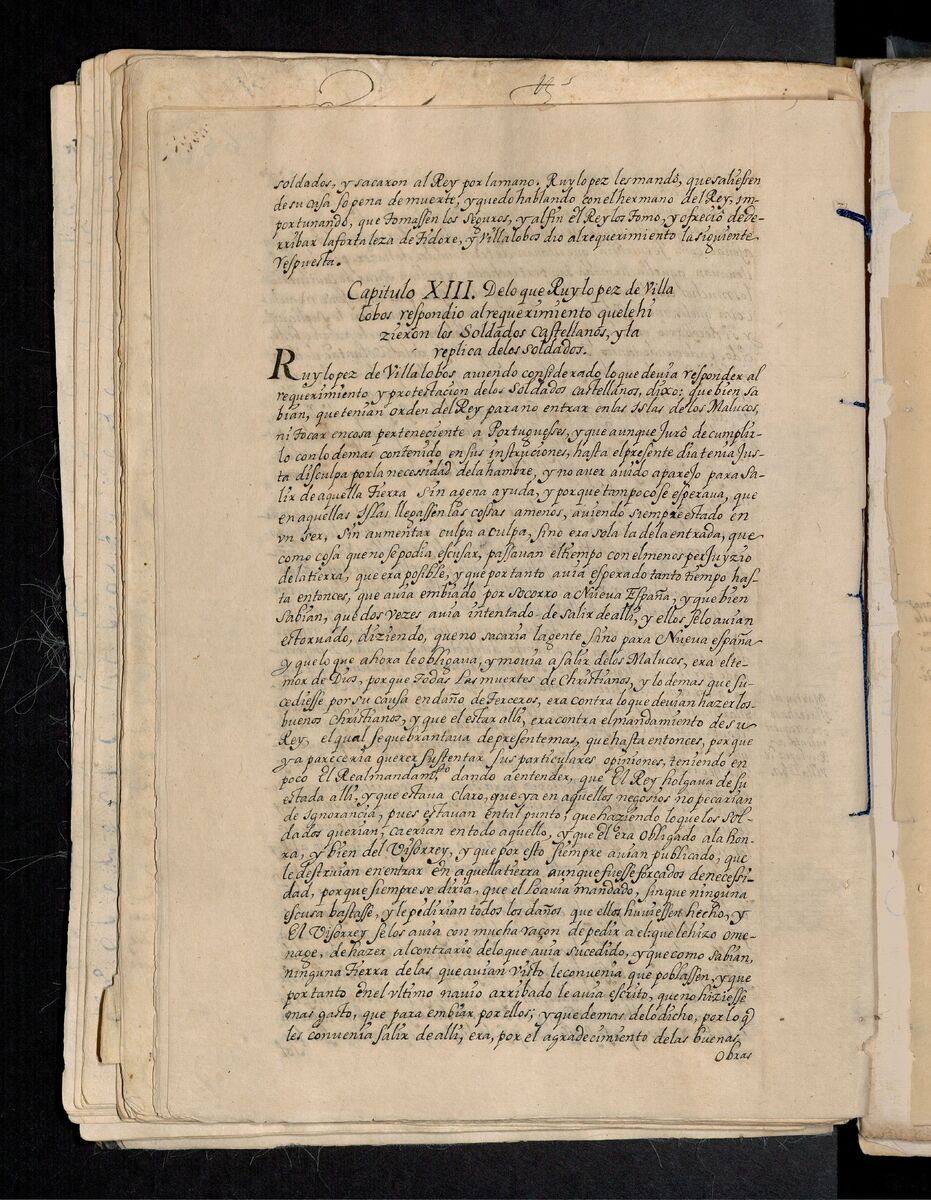 soldados, y sacaron al Rey por la mano, Ruylopez les mandó, que saliessen
de su casa so pena de muerte, y quedo hablando con el hermano del Rey, im-
portunando, que tomassen los seguros, y al fin el Rey los tomo, y ofreciô de de-
rribar la fortaleza de Tidore, y Villalobos dio al requerimiento la siguiente
respuesta.
Capitulo XIII. De lo que Ruylopez de Villa
lobos respondio al requerimiento que le hi
zieron los Soldados Castellanos, y la
replica de los soldados.
Ruylopez de Villalobos auiendo considerado lo que deuia responder al
requerimiento y protestacion de los Soldados castellanos, dixo: que bien sa
bian, que tenian orden del Rey para no entrar en las Islas de los Malucos,
ni tocar en cosa perteneciente a Portuguesses, y que aunque Jurô de cumplir-
lo con lo demas contenido en sus instruciones, hasta el presente dia tenia Jus-
ta disculpa por la necessidad de la hambre, y no auer auido aparejo para Sa-
lir de aquella Tierra sin agena ayuda, y porque tampoco se esperaua, que
en aquellas Islas llegassen las cossas a menos, auiendo siempre estado en
vn ser, sin aumentar culpa a culpa, sino era sola la de la entrada, que
como cosa que no se podia escusar, passauan el tiempo con el menos perJuyzio
de la tierra, que era posible, y que por tanto auia esperado tanto tiempo has-
ta entonces, que auia embiado por socorro a Nueva España, y que bien
sabian, que dos vezes auia intentado de salir de alli, y ellos se lo auian
estoruado, diziendo, que no sacaria la gente sino para Nueva españa
y que lo que ahora le obligaua, y mouia a salir de los Malucos, era el te-
mor de Dios, porque todas las muertes de Christianos, y lo demas que su-
cediesse por su causa en daño de Terceros, era contra lo que deuian hazer los
buenos Christianos, y que el estar alli, era contra el mandamiento de su
Rey, el qual se quebrantaua de presente mas, que hasta entonces, porque
ya pareceria querer sustentar sus particulares opiniones, teniendo en
poco El Real mandam.to dando a entender, que El Rey holgaua de su
estada alli, y que estaua claro, que ya en aquellos negosios no pecarian
de ignorancia, pues estauan en tal punto, que haziendo lo que los Sol-
dados querian, caerian en todo aquello, y que êl era obligado a la hon-
ra, y bien del Visorrey, y que por esto siempre auian publicado, que
le destruian en entrar en aquella tierra aunque fuesse forçados de necessi-
dad, porque siempre se diria, que el lo auia mandado, sin que ninguna
escusa bastasse, y le pedirian todos los daños que ellos huuiessen hecho, y
El Visorrey se los auia con mucha raçon de pedir a el; que le hizo ome-
nage, de hazer al contrario de lo que auia sucedido, y que como sabian,
ninguna Tierra de las que auian visto le conuenia que poblassen, y que
por tanto en el vltimo nauio arribado le auia escrito, que no hiziesse
mas gasto, que para embiar por ellos; y que demas de lo dicho, por lo q̃
les conuenia salir de alli, era, por el agradecimiento de las buenas
obras